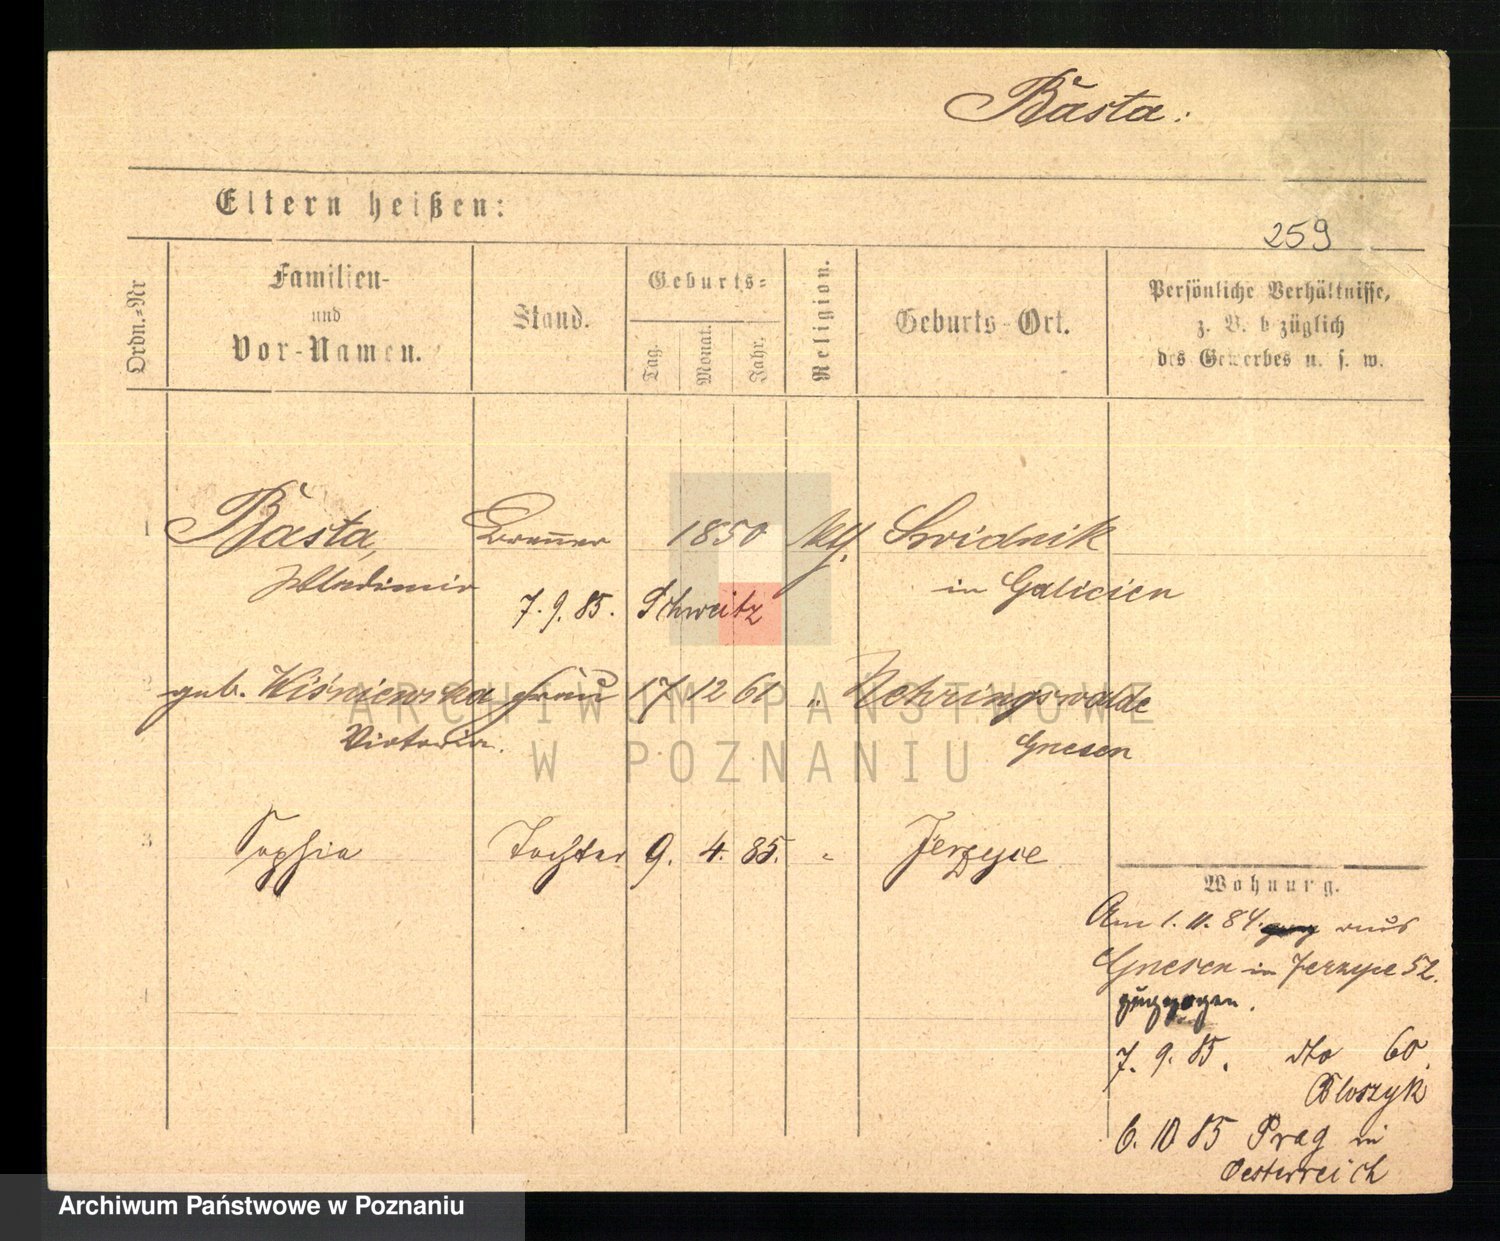 Băsta.
Eltern heißen:
259
Ordn.-Nr
Familien-
und
Vor-Namen.
Stand.
Geburts-
Tag.
Monat.
Jahr.
Religion.
Geburts-Ort.
Persönliche Verhältnisse,
z. B. bezüglich
des Gewerbes u. s. w.
1 Băsta, Brenner 1850 Swidnik
Wladimir in Galicien
7. 9. 85. Schweitz
geb. Wiśniewska Frau 17 12 61 " Nehringswalde
Victoria. Gnesen
3 Sophia Tochter 9. 4. 85. " Jerzyce
Wohnung.
Am 1. 11. 84. aus
Gnesen in Jerzyce 52.
zugezogen.
7. 9. 85. dto 60.
6. 10 85 Prag in
Oesterreich
ARCHIWUM PAŃSTWOWE
W POZNANIU
Archiwum Państwowe w Poznaniu